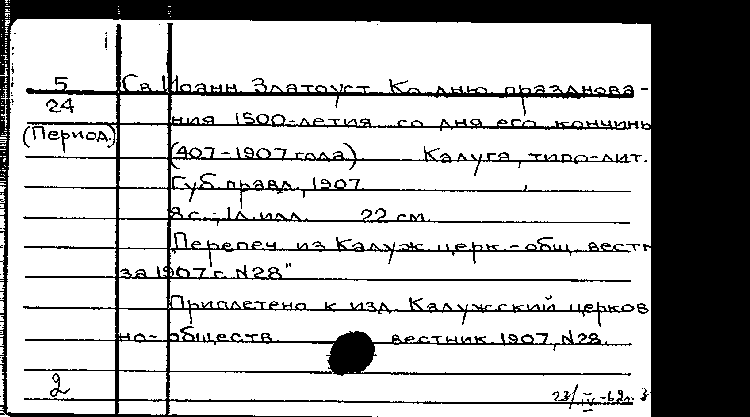 5 Св. Иоанн Златоуст. Ко дню празднова-
24 ния 1500-летия со дня его кончины
(Период.) (407-1907 года). Калуга, типо-лит.
Губ. правл., 1907.
8 с., 1 л. илл. 22 см.
Перепеч. из Калуж. церк.-общ. вестн
за 1907 г. N28"
Приплетено к изд. Калужский церков
но-обществ. вестник. 1907, N28.
2